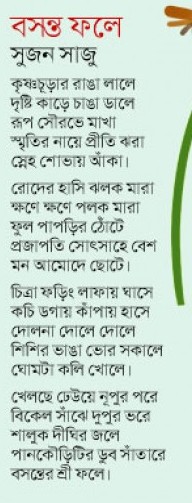 বসন্ত ফলে
সুজন সাজু
কৃষ্ণচূড়ার রাঙা লালে
দৃষ্টি কাড়ে চাঙা ডালে
রূপ সৌরভে মাখা
স্মৃতির নায়ে প্রীতি ঝরা
স্নেহ শোভায় আঁকা।
রোদের হাসি ঝলক মারা
ক্ষণে ক্ষণে পলক মারা
ফুল পাপড়ির ঠোঁটে
প্রজাপতি সোৎসাহে বেশ
মন আমোদে ছোটে।
চিত্রা ফড়িং লাফায় ঘাসে
কচি ডগায় কাঁপায় হাসে
দোলনা দোলে দোলে
শিশির ভাঙা ভোর সকালে
ঘোমটা কলি খোলে।
খেলছে ঢেউয়ে নূপুর পরে
বিকেল সাঁঝে দুপুর ভরে
শালুক দীঘির জলে
পানকৌড়িটির ডুব সাঁতারে
বসন্তের শ্রী ফলে।